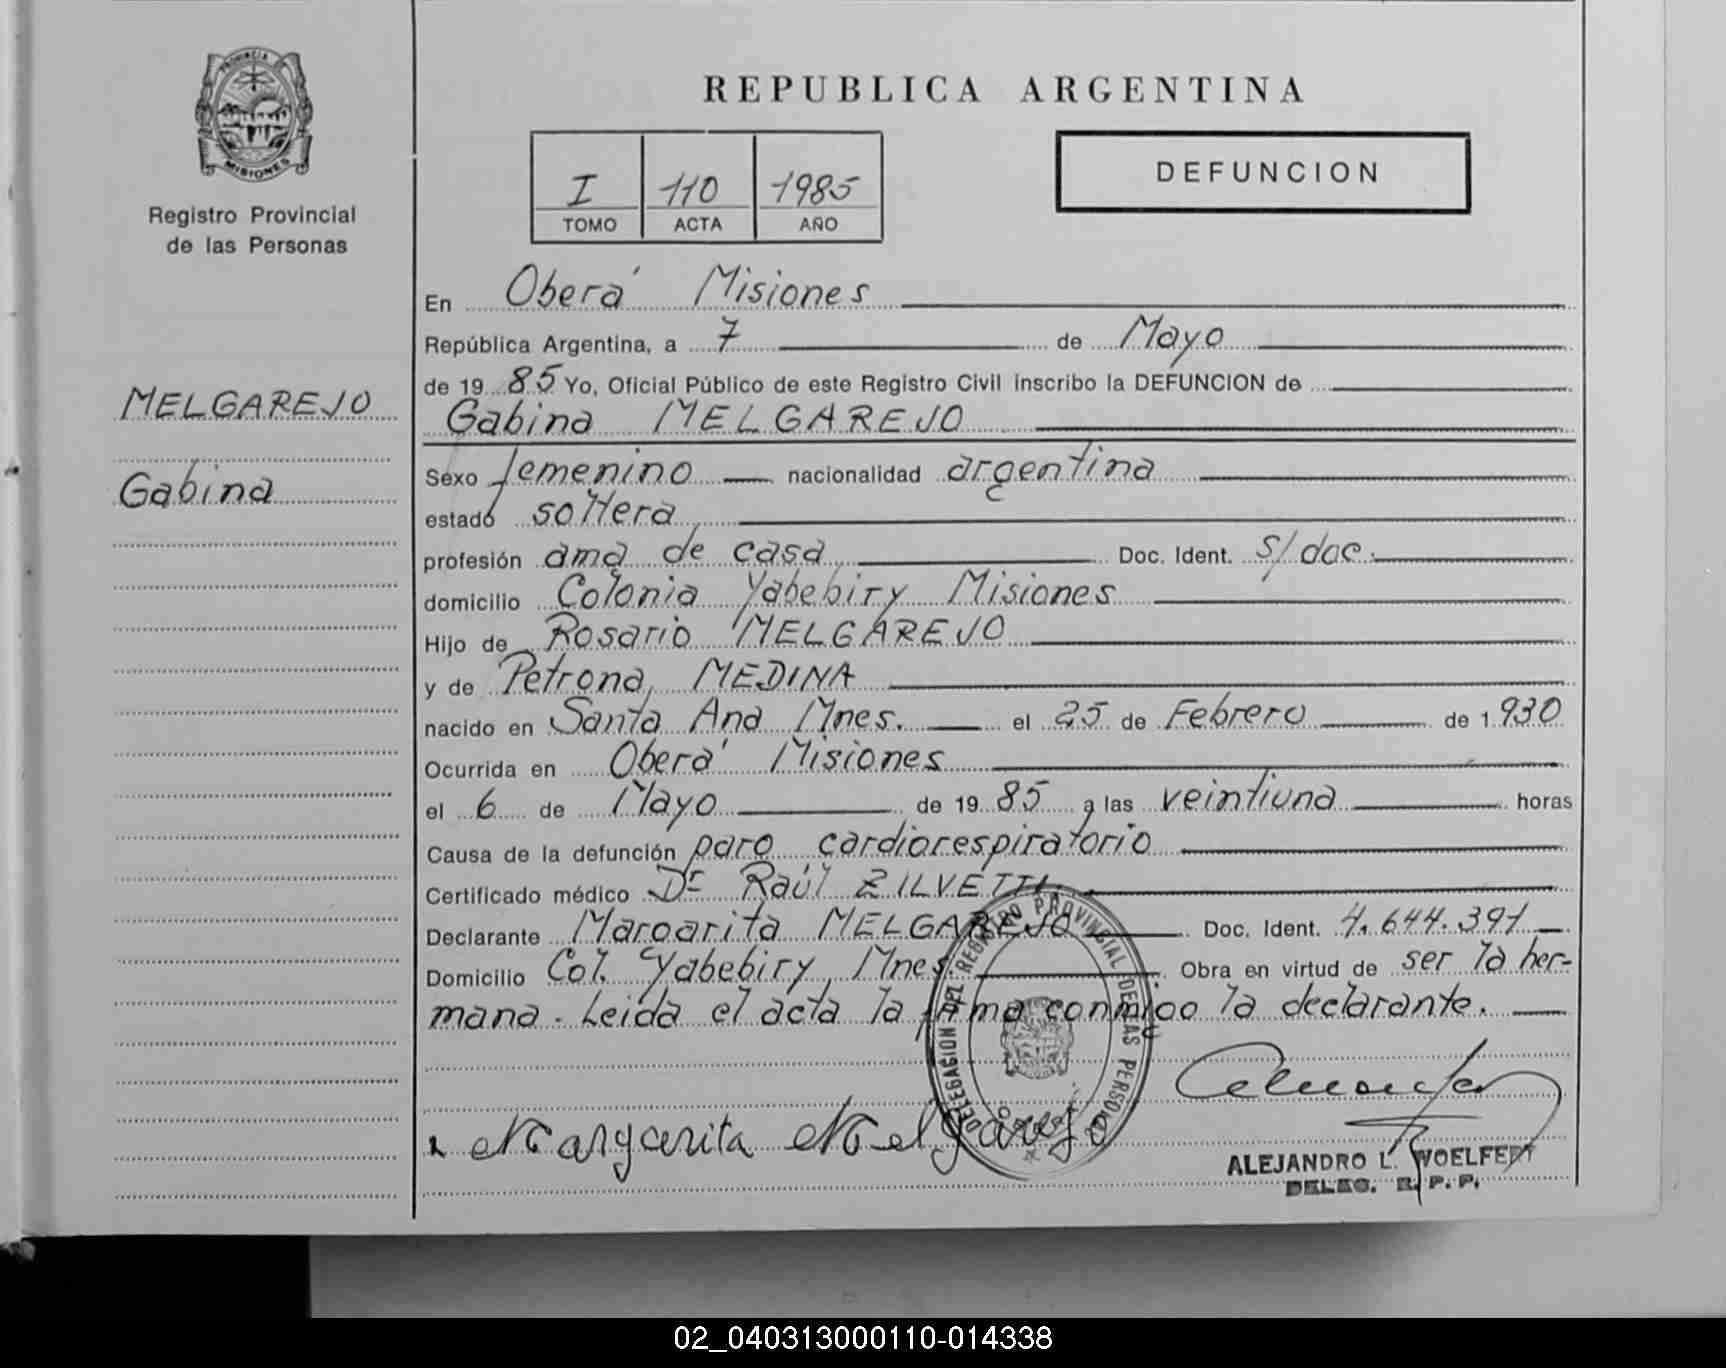 PROVINCIA DE
MISIONES
Registro Provincial
de las Personas
MELGAREJO
Gabina
REPUBLICA ARGENTINA
I 110 1985
TOMO ACTA AÑO
DEFUNCION
En Oberá Misiones
República Argentina, a 7 de Mayo
de 1985 Yo, Oficial Público de este Registro Civil inscribo la DEFUNCION de
Gabina MELGAREJO
Sexo femenino nacionalidad argentina
estado soltera
profesión ama de casa Doc. Ident. s/doc.
domicilio Colonia Yabebiry Misiones
Hijo de Rosario MELGAREJO
y de Petrona MEDINA
nacido en Santa Ana Mnes. el 25 de Febrero de 1930
Ocurrida en Oberá Misiones
el 6 de Mayo de 1985 a las veintiuna horas
Causa de la defunción paro cardiorespiratorio
Certificado médico Dr Raúl ZILVETTI
Declarante Margarita MELGAREJO Doc. Ident. 4.644.391
Domicilio Col. Yabebiry Mnes. Obra en virtud de ser la her-
mana. Leida el acta la firma conmigo la declarante.
DELEGACION DEL REGISTRO PROVINCIAL DE LAS PERSONAS
Margarita Melgarejo
ALEJANDRO L. WOELFERT
DELEG. R. P. P.
02_040313000110-014338